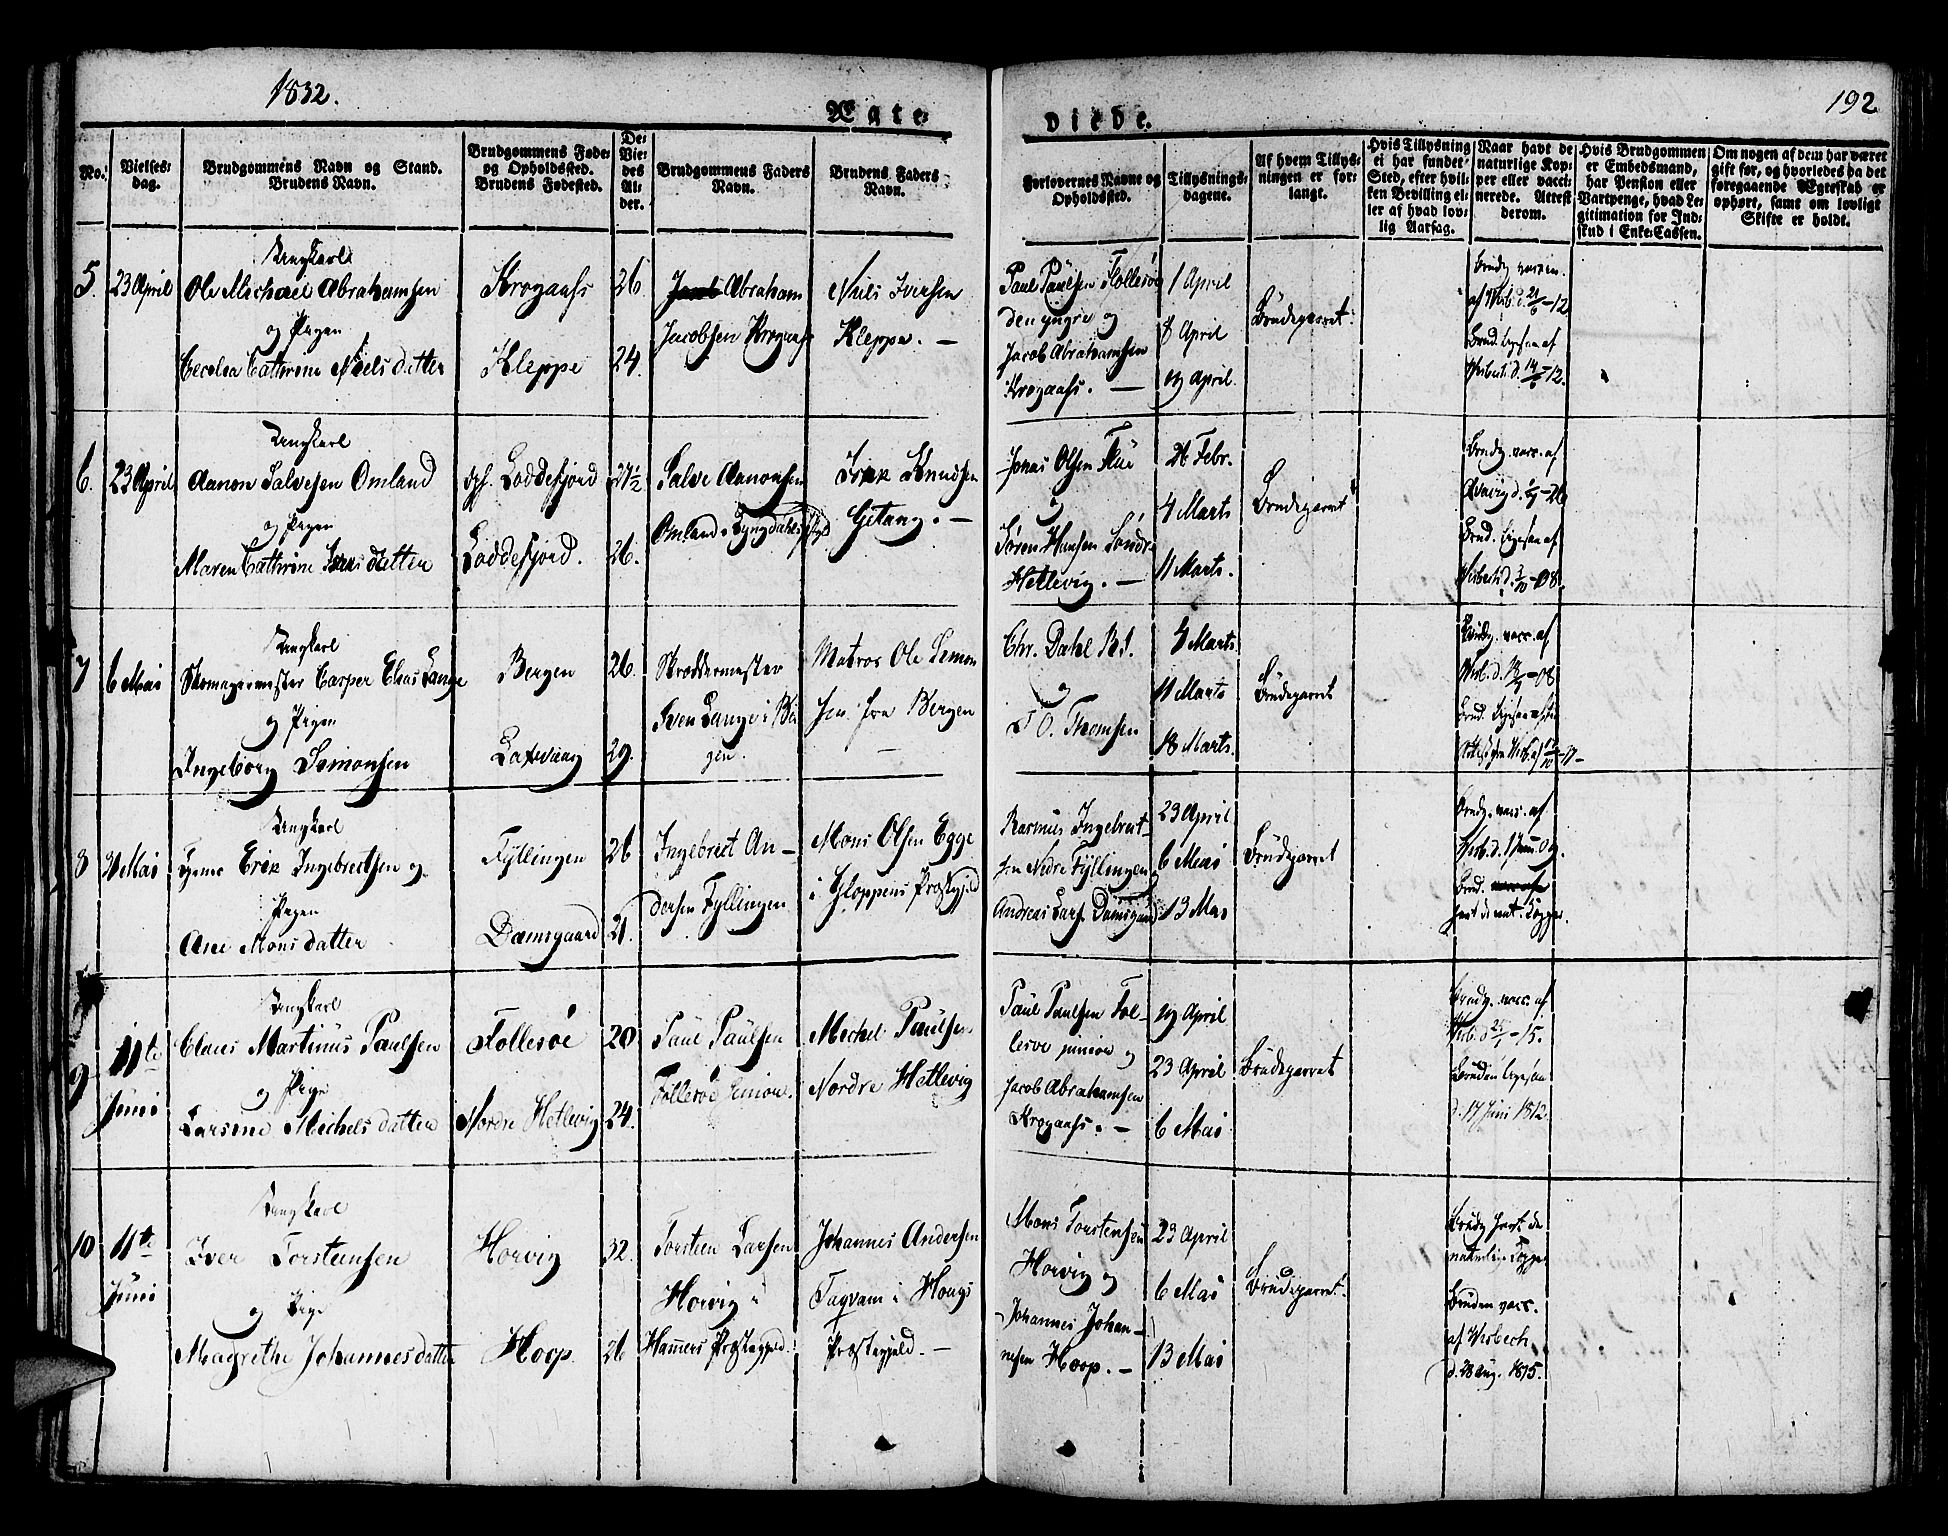 1832.
192
Ægte-
viede.
No.
Vielses-
dag.
Brudgommens Navn og Stand.
Brudens Navn.
Brudgommens Føde-
og Opholdssted.
Brudens Fødested.
De
Vie-
des
Al-
der.
Brudgommens Faders
Navn.
Brudens Faders
Navn.
Forlovernes Navne og
Opholdssted.
Tillysnings-
dagene.
Af hvem Tillys-
ningen er for-
langt.
Hvis Tillysning
ei har fundet
Sted, efter hvil-
ken Bevilling el-
ler af hvad lov-
lig Aarsag.
Naar havt de
naturlige Kop-
per eller vacci-
nerede. Attest
derom.
Hvis Brudgommen
er Embedsmand,
har Pension eller
Vartpenge, hvad Le-
gitimation for Ind-
skud i Enke-Cassen.
Om nogen af dem har været
gift før, og hvorledes da det
foregaaende Ægteskab er
ophørt, samt om lovligt
Skifte er holdt.
5.
23 April
Ungkarl
Ole Michael Abrahamsen
og Pigen
Cecelia Cathrine Nielsdatter
Krogaass
Kleppe
26
24.
Jacob Abraham
Jacobsen Krogaas
Niels Iversen
Kleppe. —
Paul Paulsen Follesøe
den yngre og
Jacob Abrahamsen
Krogaass. —
1 April
8 April
19 April.
Brudeparret.
Brudg. vaccin.
af Wisb. d. 21/6 - 12
Brud. ligesaa af
Wisb. d. 14/6 - 12.
6.
23 April
Ungkarl
Aanon Salvesen Omland
og Pigen
Maren Cathrine datter
Loddefjord
Loddefjord.
27½
26.
Salve Aanonsen
Omland i Lyngdahls
Knudsen
Getang. —
Jonas Olsen
og
Søren Hansen Søndre
Hetlevig. —
26 Febr.
4 Marts
11 Marts.
Brudeparret
Brudg. vacc. af
Brud. ligesaa af
7
6 Mai
Ungkarl
Skomagermester Casper Elias Lange
og Pigen
Ingeborg Simonsen
Bergen
Laxevaag
26.
29.
Skreddermester
Sven Lange i Ber-
gen.
Matros Ole Simon-
sen fra Bergen
—
Chr. Dahl
og
O. Thomsen
4 Marts
11 Marts
18 Marts.
Brudeparret
Brudg. vacc. af
Brud. ligesaa
8
Mai
Ungkarl
Erik Ingebretsen og
Pigen
Ane Monsdatter
Fyllingen
Damsgaard
26
21.
Ingebret An-
dersen Fyllingen
Mons Olsen Egge
i Gloppens Præstegjeld
Rasmus Ingebret-
sen Nedre Fyllingen
Andreas Lars. Damsgaard
23 April
6 Mai
13 Mai
Brudeparret
Brudg. vacc. af
Brud.
havt de nat. Kopper.
9
11te
Juni
Ungkarl
Claus Martinus Paulsen
og Pige
Larsine Michelsdatter
Follesøe
Nordre Hetlevig
20
24.
Paul Paulsen
Follesøe senior.
Michel Paulsen
Nordre Hetlevig
Paul Paulsen Fol-
lesøe junior og
Jacob Abrahamsen
Krogaass. —
19 April
23 April
6 Mai
Brudeparret
Brudg. vacc. af
Wisb. d. - 15.
Bruden ligesaa
d. 17 Juni 1812
10
11te
Juni
Ungkarl
Iver Torstensen
og Pige
Magrethe Johannesdatter
Horvig
Hoop.
32.
26
Torsten Larsen
Horvig i
Hammers Præstegjeld.
Johannes Andersen
Tagvam i Hougs
Præstegjeld. —
Mons Torstensen
Horvig og
Johannes Johan-
nesen Hoop. —
23 April
6 Mai
13 Mai
Brudeparret.
Brudg. havt de
naturlige Kopper
Bruden vacc.
af Wisbech
d. 28 Aug. 1815.